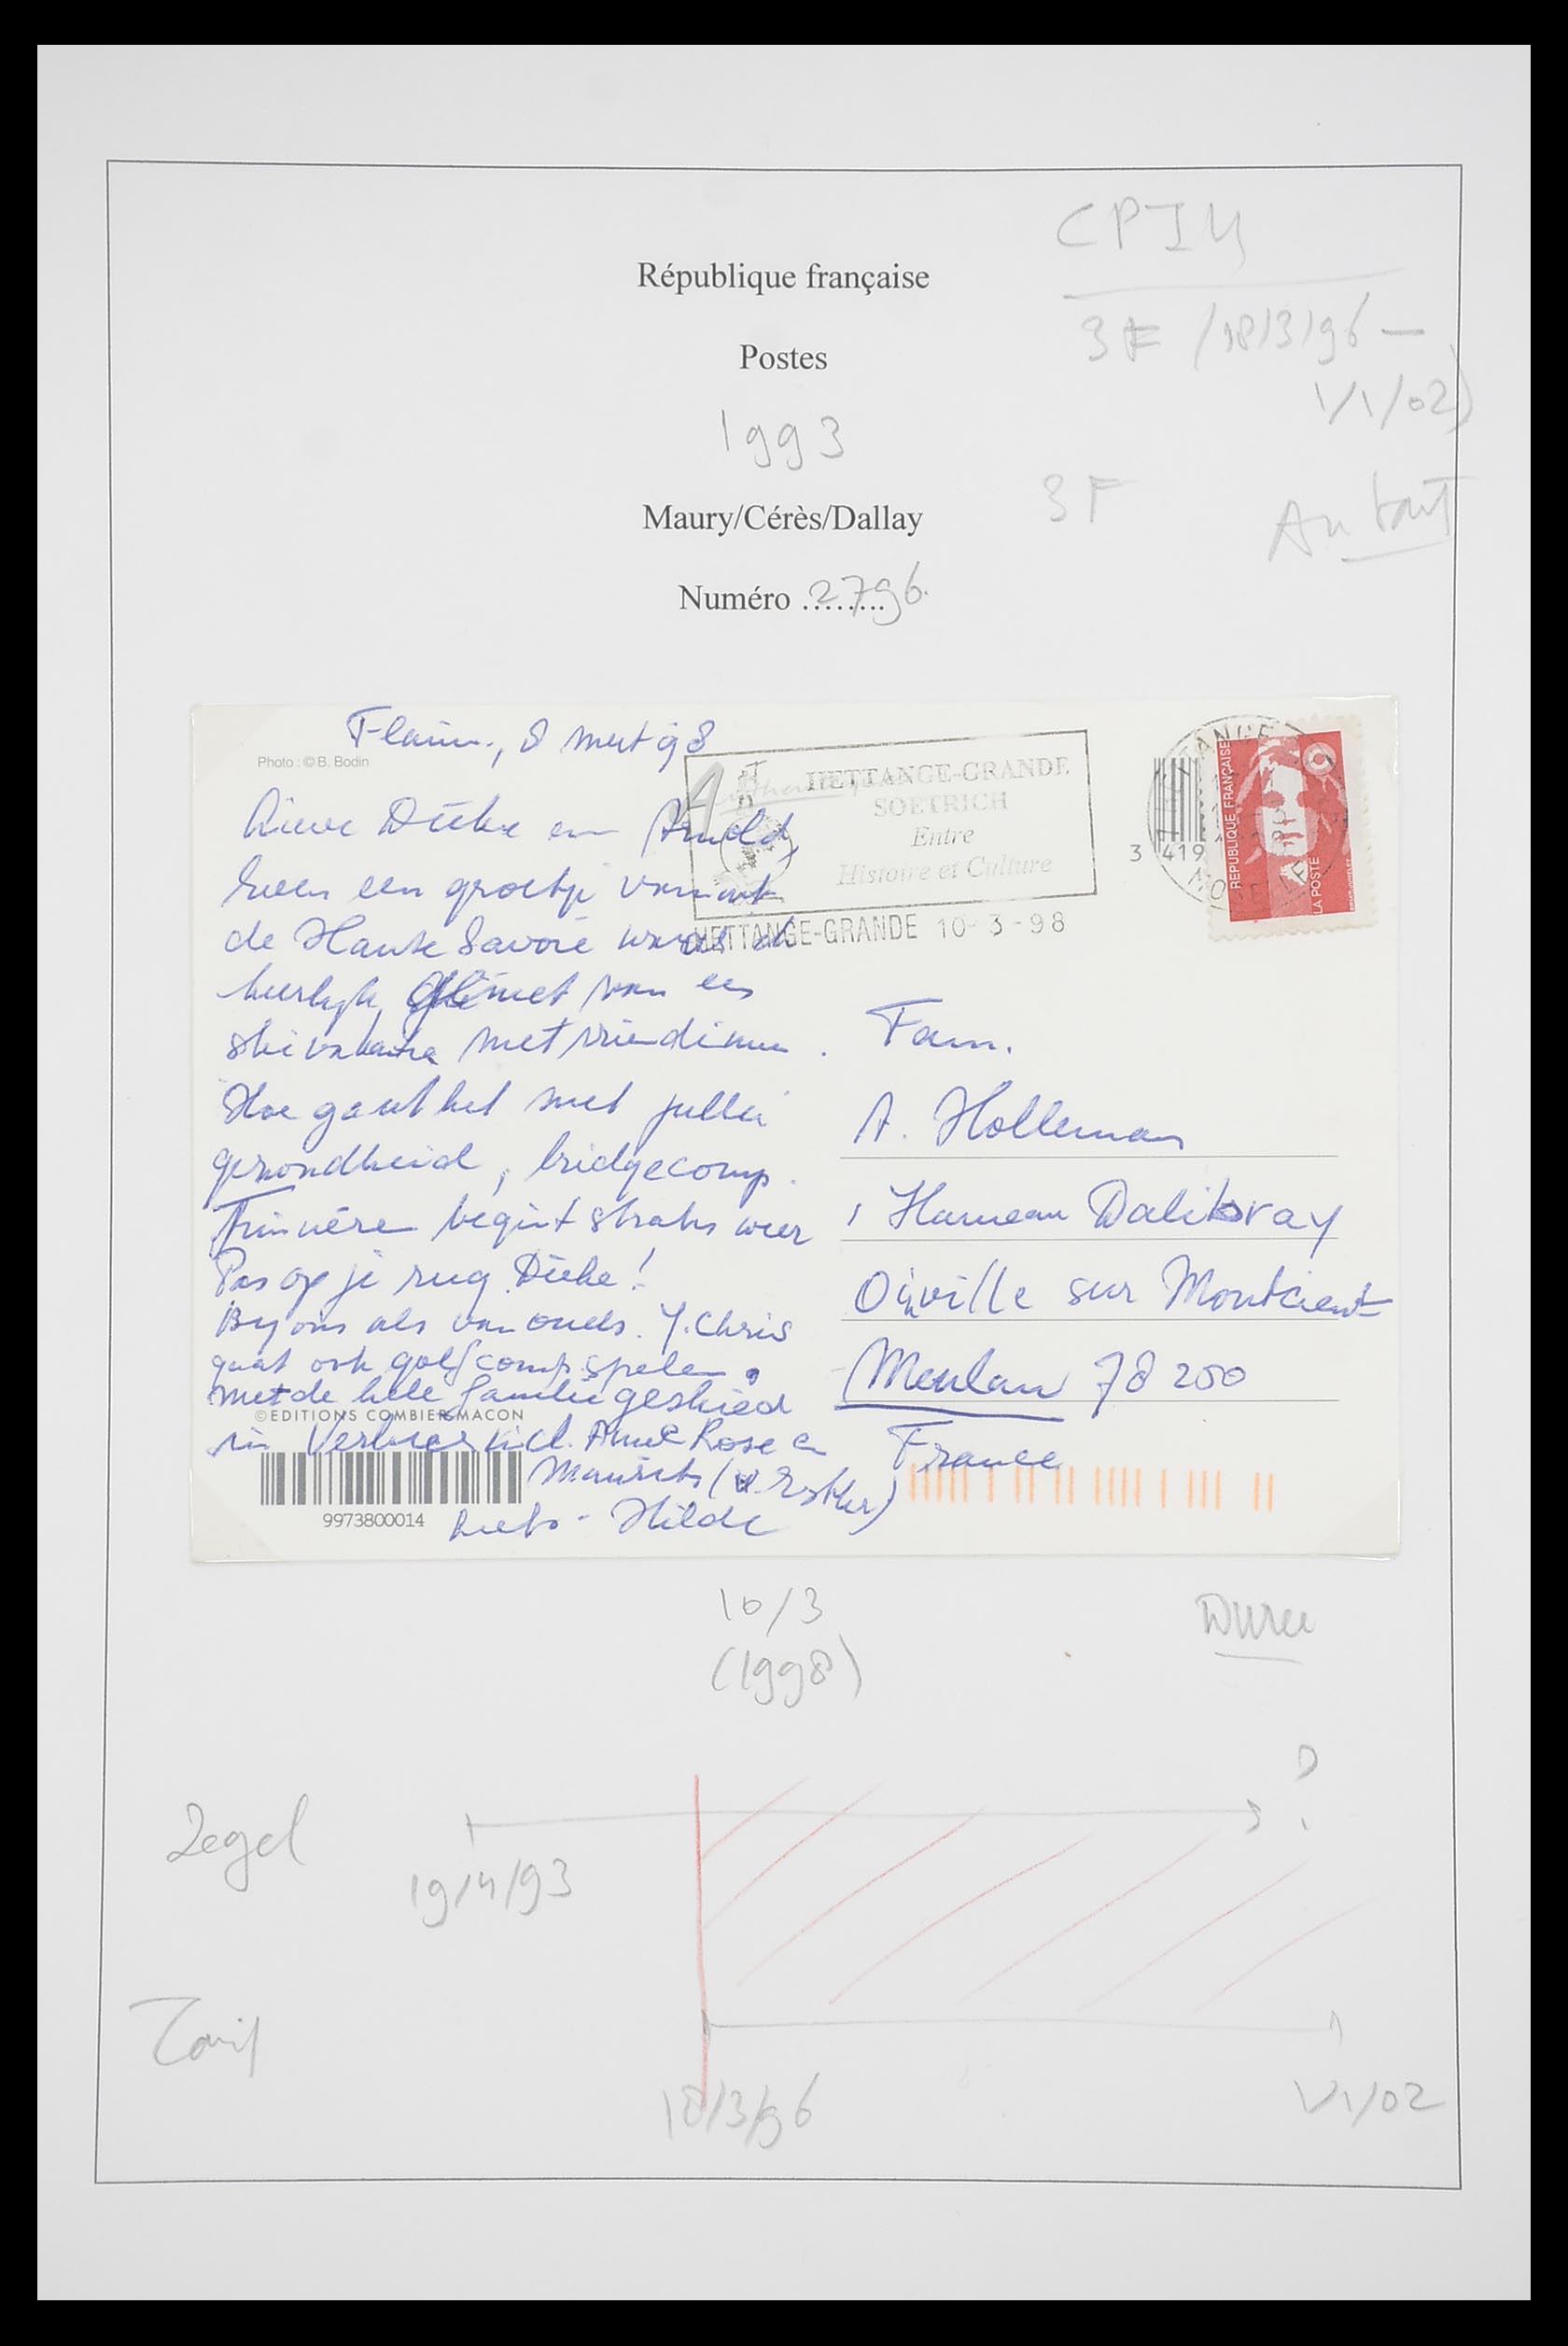 CPIU
République française
3F /18/3/96 –
Postes
1/1/02)
1993
3F
Au tarif
Maury/Cérès/Dallay
Numéro ........ 2796.
Flaine, 8 mrt 98
Photo : © B. Bodin
HETTANGE-GRANDE
SOETRICH
Entre
Histoire et Culture
HETTANGE-GRANDE 10-3-98
3 419
HETTANGE
MOSELLE
REPUBLIQUE FRANÇAISE
LA POSTE
Lieve Dieke en Arnold,
even een groetje vanuit
de Haute Savoie waar ik
heerlijk geniet van een
ski vakantie met vriendinnen.
Hoe gaat het met jullie
gezondheid, bridgecomp.
begint straks weer
Pas op je rug Dieke!
Bij ons als van ouds. Y. Chris
gaat ook golfcomp. spelen.
met de hele familie geskied
©EDITIONS COMBIER MACON
in Verbier incl. Anne Rose en
Maurits (v. Esther)
9973800014
Liefs - Hilde
Fam.
A. Holleman
1 Hameau Dalibray
Oinville sur Montcient
Meulan 78200
France
10/3
(1998)
Duree
D
Zegel
19/4/93
Tarif
18/3/96
1/1/02